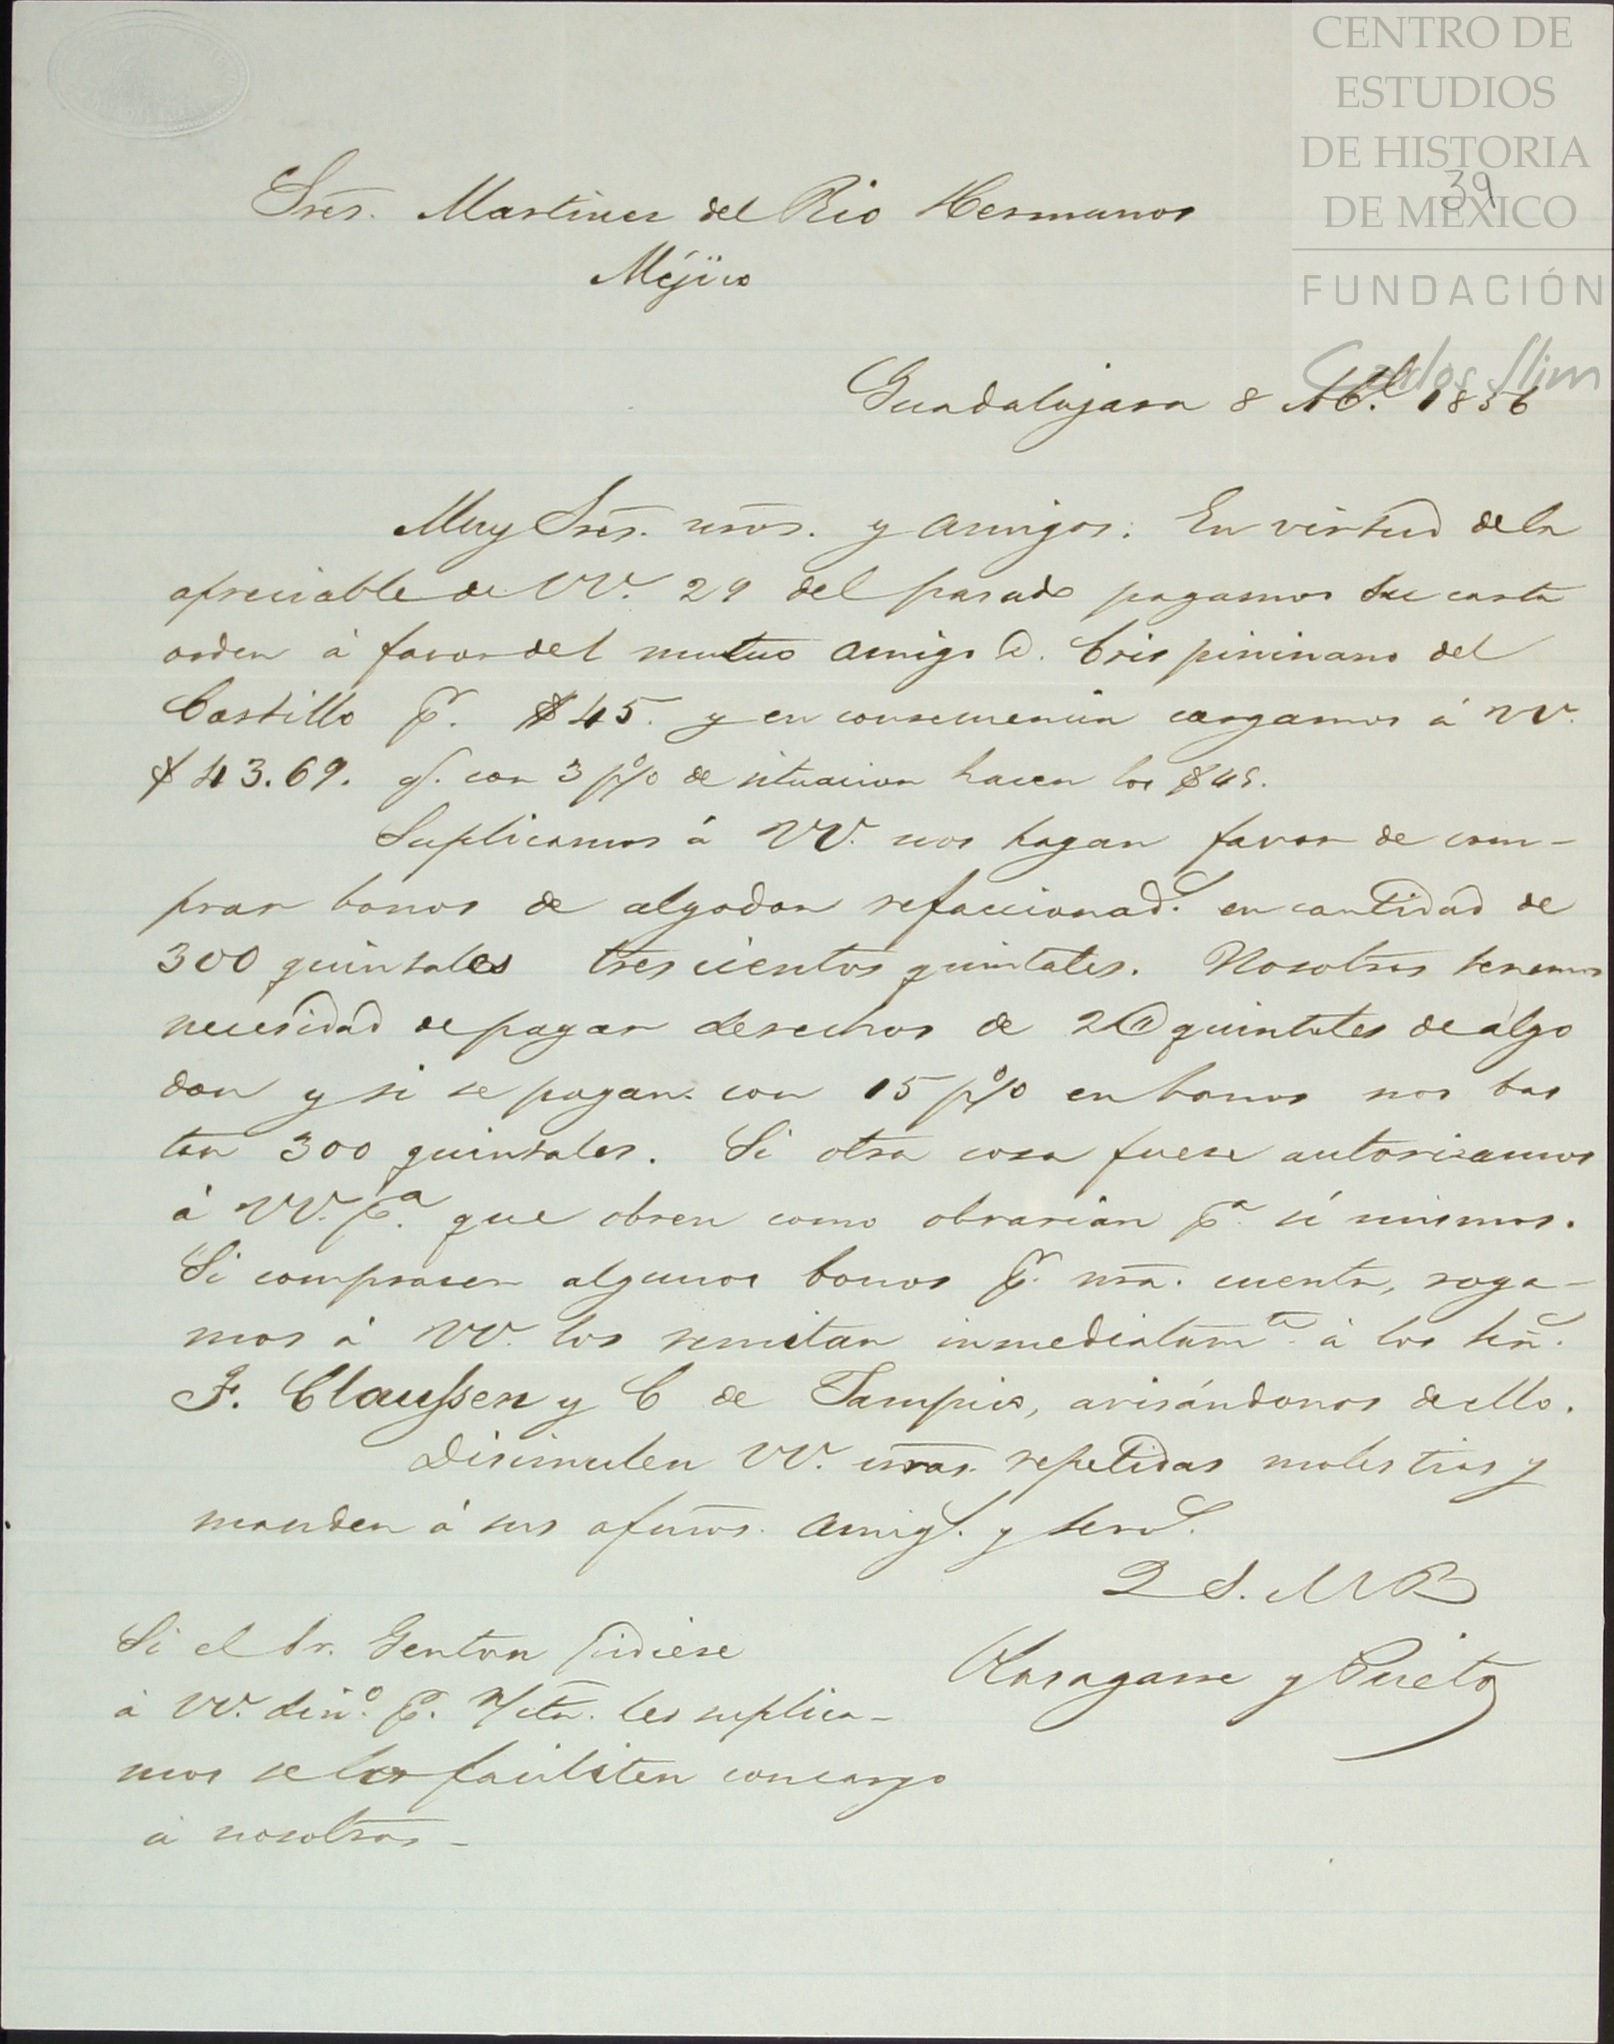 CENTRO DE
ESTUDIOS
DE HISTORIA
DE MÉXICO
39
FUNDACIÓN
Carlos Slim
Sres. Martinez del Rio Hermanos
Méjico
Guadalajara 8 Ab.l 1856
Muy Sres. nros. y amigos: En virtud de la
apreciable de VV. 29 del pasado pagamos su carta
orden á favor del mutuo amigo D. Crispininano del
Castillo pr. $45. y en consecuencia cargamos á VV.
$43.69. q. con 3 p% de situacion hacen los $45.
Suplicamos á VV. nos hagan favor de com-
prar bonos de algodon refaccionad.s en cantidad de
300 quintales trescientos quintales. Nosotros tenemos
necesidad de pagar derechos de 2@ quintales de algo
don y si se pagan con 15 p% en bonos nos bas
tan 300 quintales. Si otra cosa fuese autorizamos
á VV. pa. que obren como obrarian pa. sí mismos.
Si comprasen algunos bonos pr. nra. cuenta, roga-
mos á VV. los remitan inmediatam.te á los Sñ.s
F. Claussen y C de Tampico, avisándonos de ello.
Disimulen VV. nras. repetidas molestias y
manden á sus afmos. amig.s y serv.s
Q S. M B
Olasagarre y Prieto
Si el Sr. Genton pidiese
á VV. din.o pr. n/cta. les suplica-
mos se los faciliten con cargo
á nosotros-